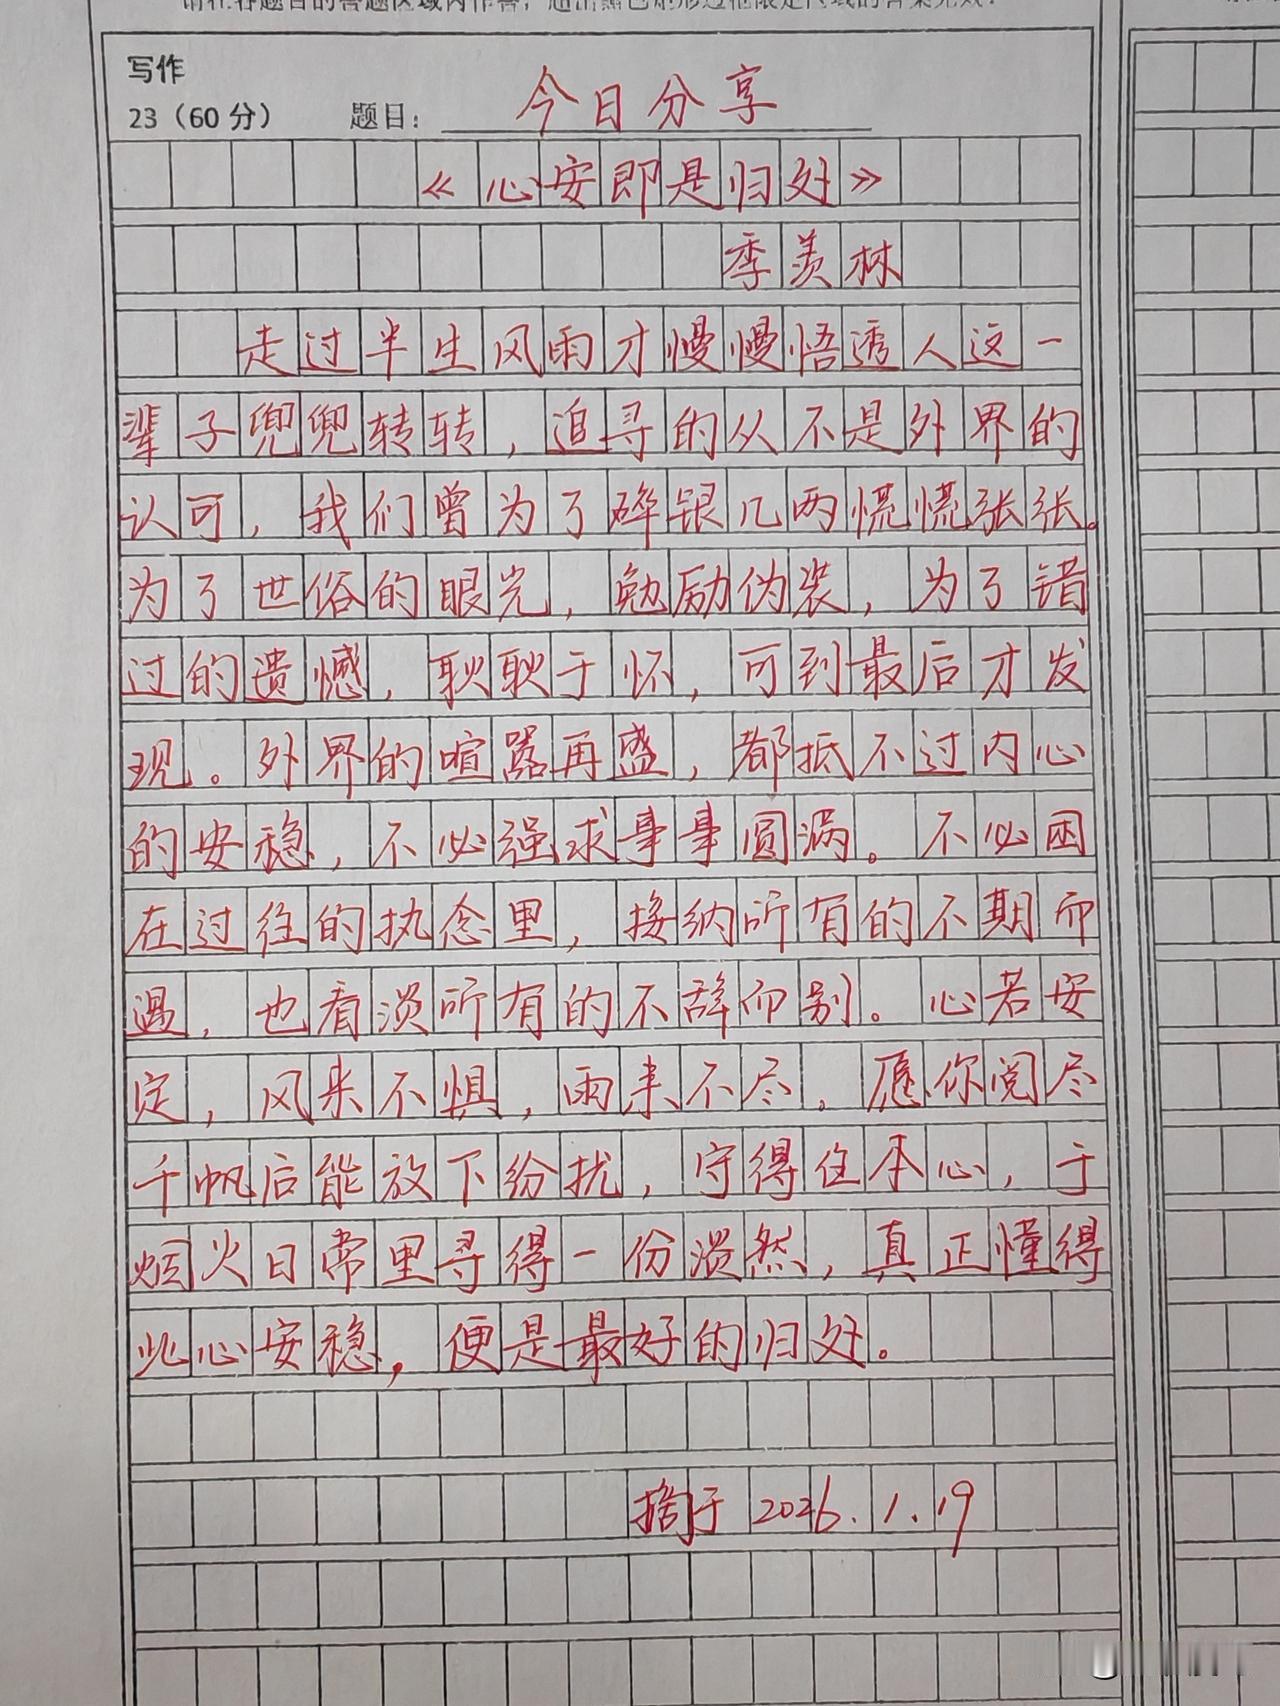 写作
23（60分） 题目： 今日分享
《心安即是归处》
季羡林
走过半生风雨才慢慢悟透人这一
辈子兜兜转转，追寻的从不是外界的
认可，我们曾为了碎银几两慌慌张张。
为了世俗的眼光，勉励伪装，为了错
过的遗憾，耿耿于怀，可到最后才发
现。外界的喧嚣再盛，都抵不过内心
的安稳，不必强求事事圆满。不必困
在过往的执念里，接纳所有的不期而
遇，也看淡所有的不辞而别。心若安
定，风来不惧，雨来不尽。愿你阅尽
千帆后能放下纷扰，守得住本心，于
烟火日常里寻得一份淡然，真正懂得
此心安稳，便是最好的归处。
于2026.1.19